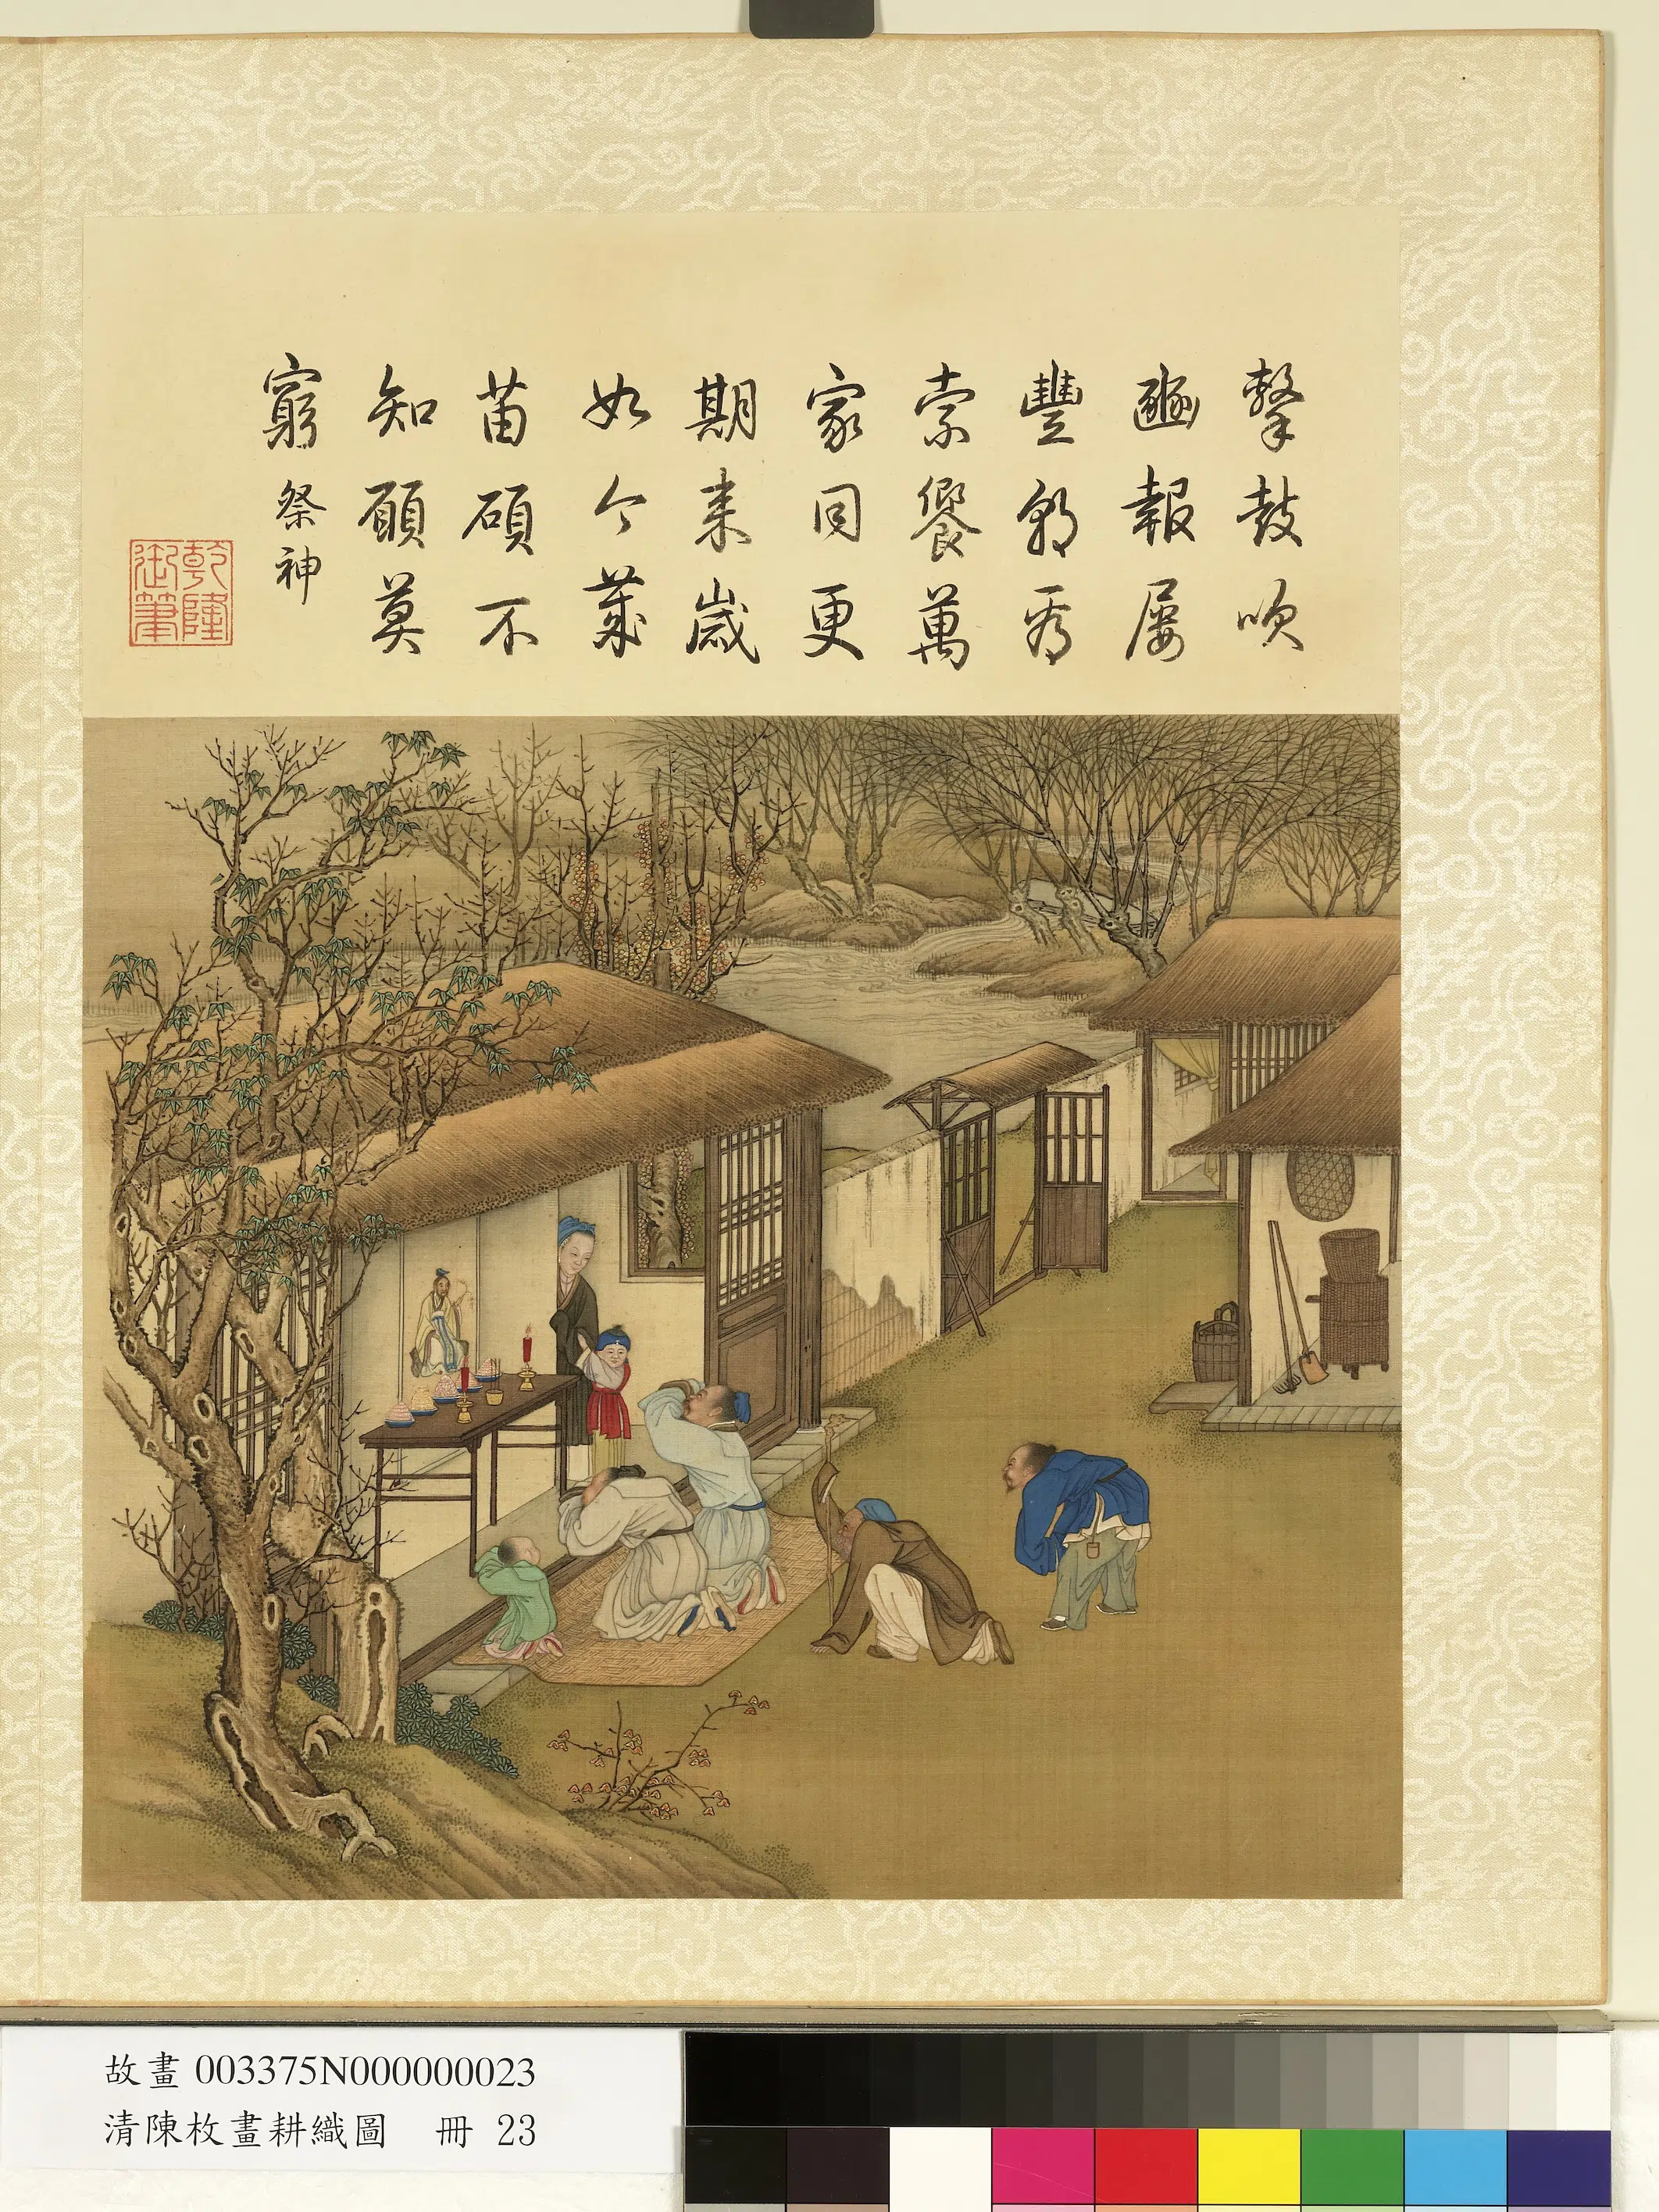 擊鼓吹
豳報屢
豐為
索饗萬
家同更
期来歲
如今歲
苗碩不
知願莫
窮祭神
乾隆
御筆
故畫 003375N000000023
清陳枚畫耕織圖 冊 23